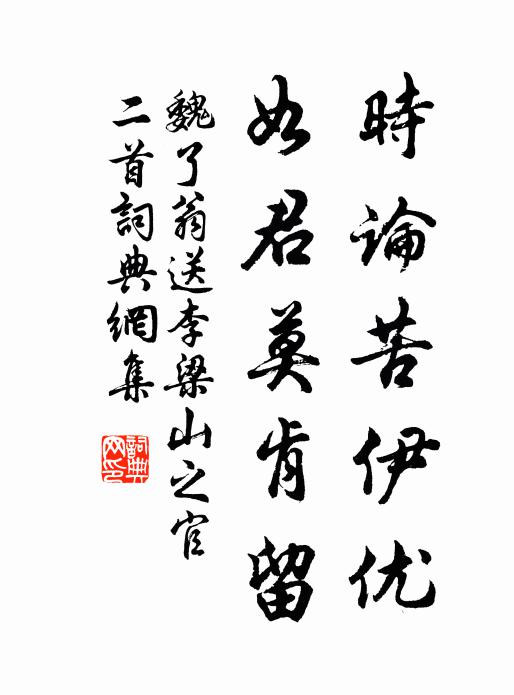 時論苦伊优
如君莫肯留
魏了翁送李梁山之官
二首詞典網集
詞典网印